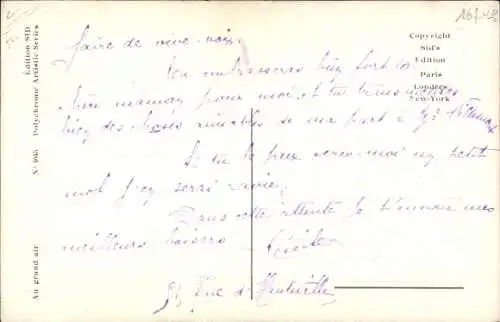 167-13
Edition SID
Polychrome Artistic Series
N° 9165
Au grand air
Copyright
Sid's
Edition
Paris
Londres
New-York
faire de vive voix.
Tu embrasseras bien fort ta
chère maman pour moi et tu
bien des choses aimables de ma part à
Si tu le peux écris-moi un petit
mot j'en serai ravie.
Dans cette attente je t'envoie mes
meilleurs baisers
51 Rue d'Hauteville